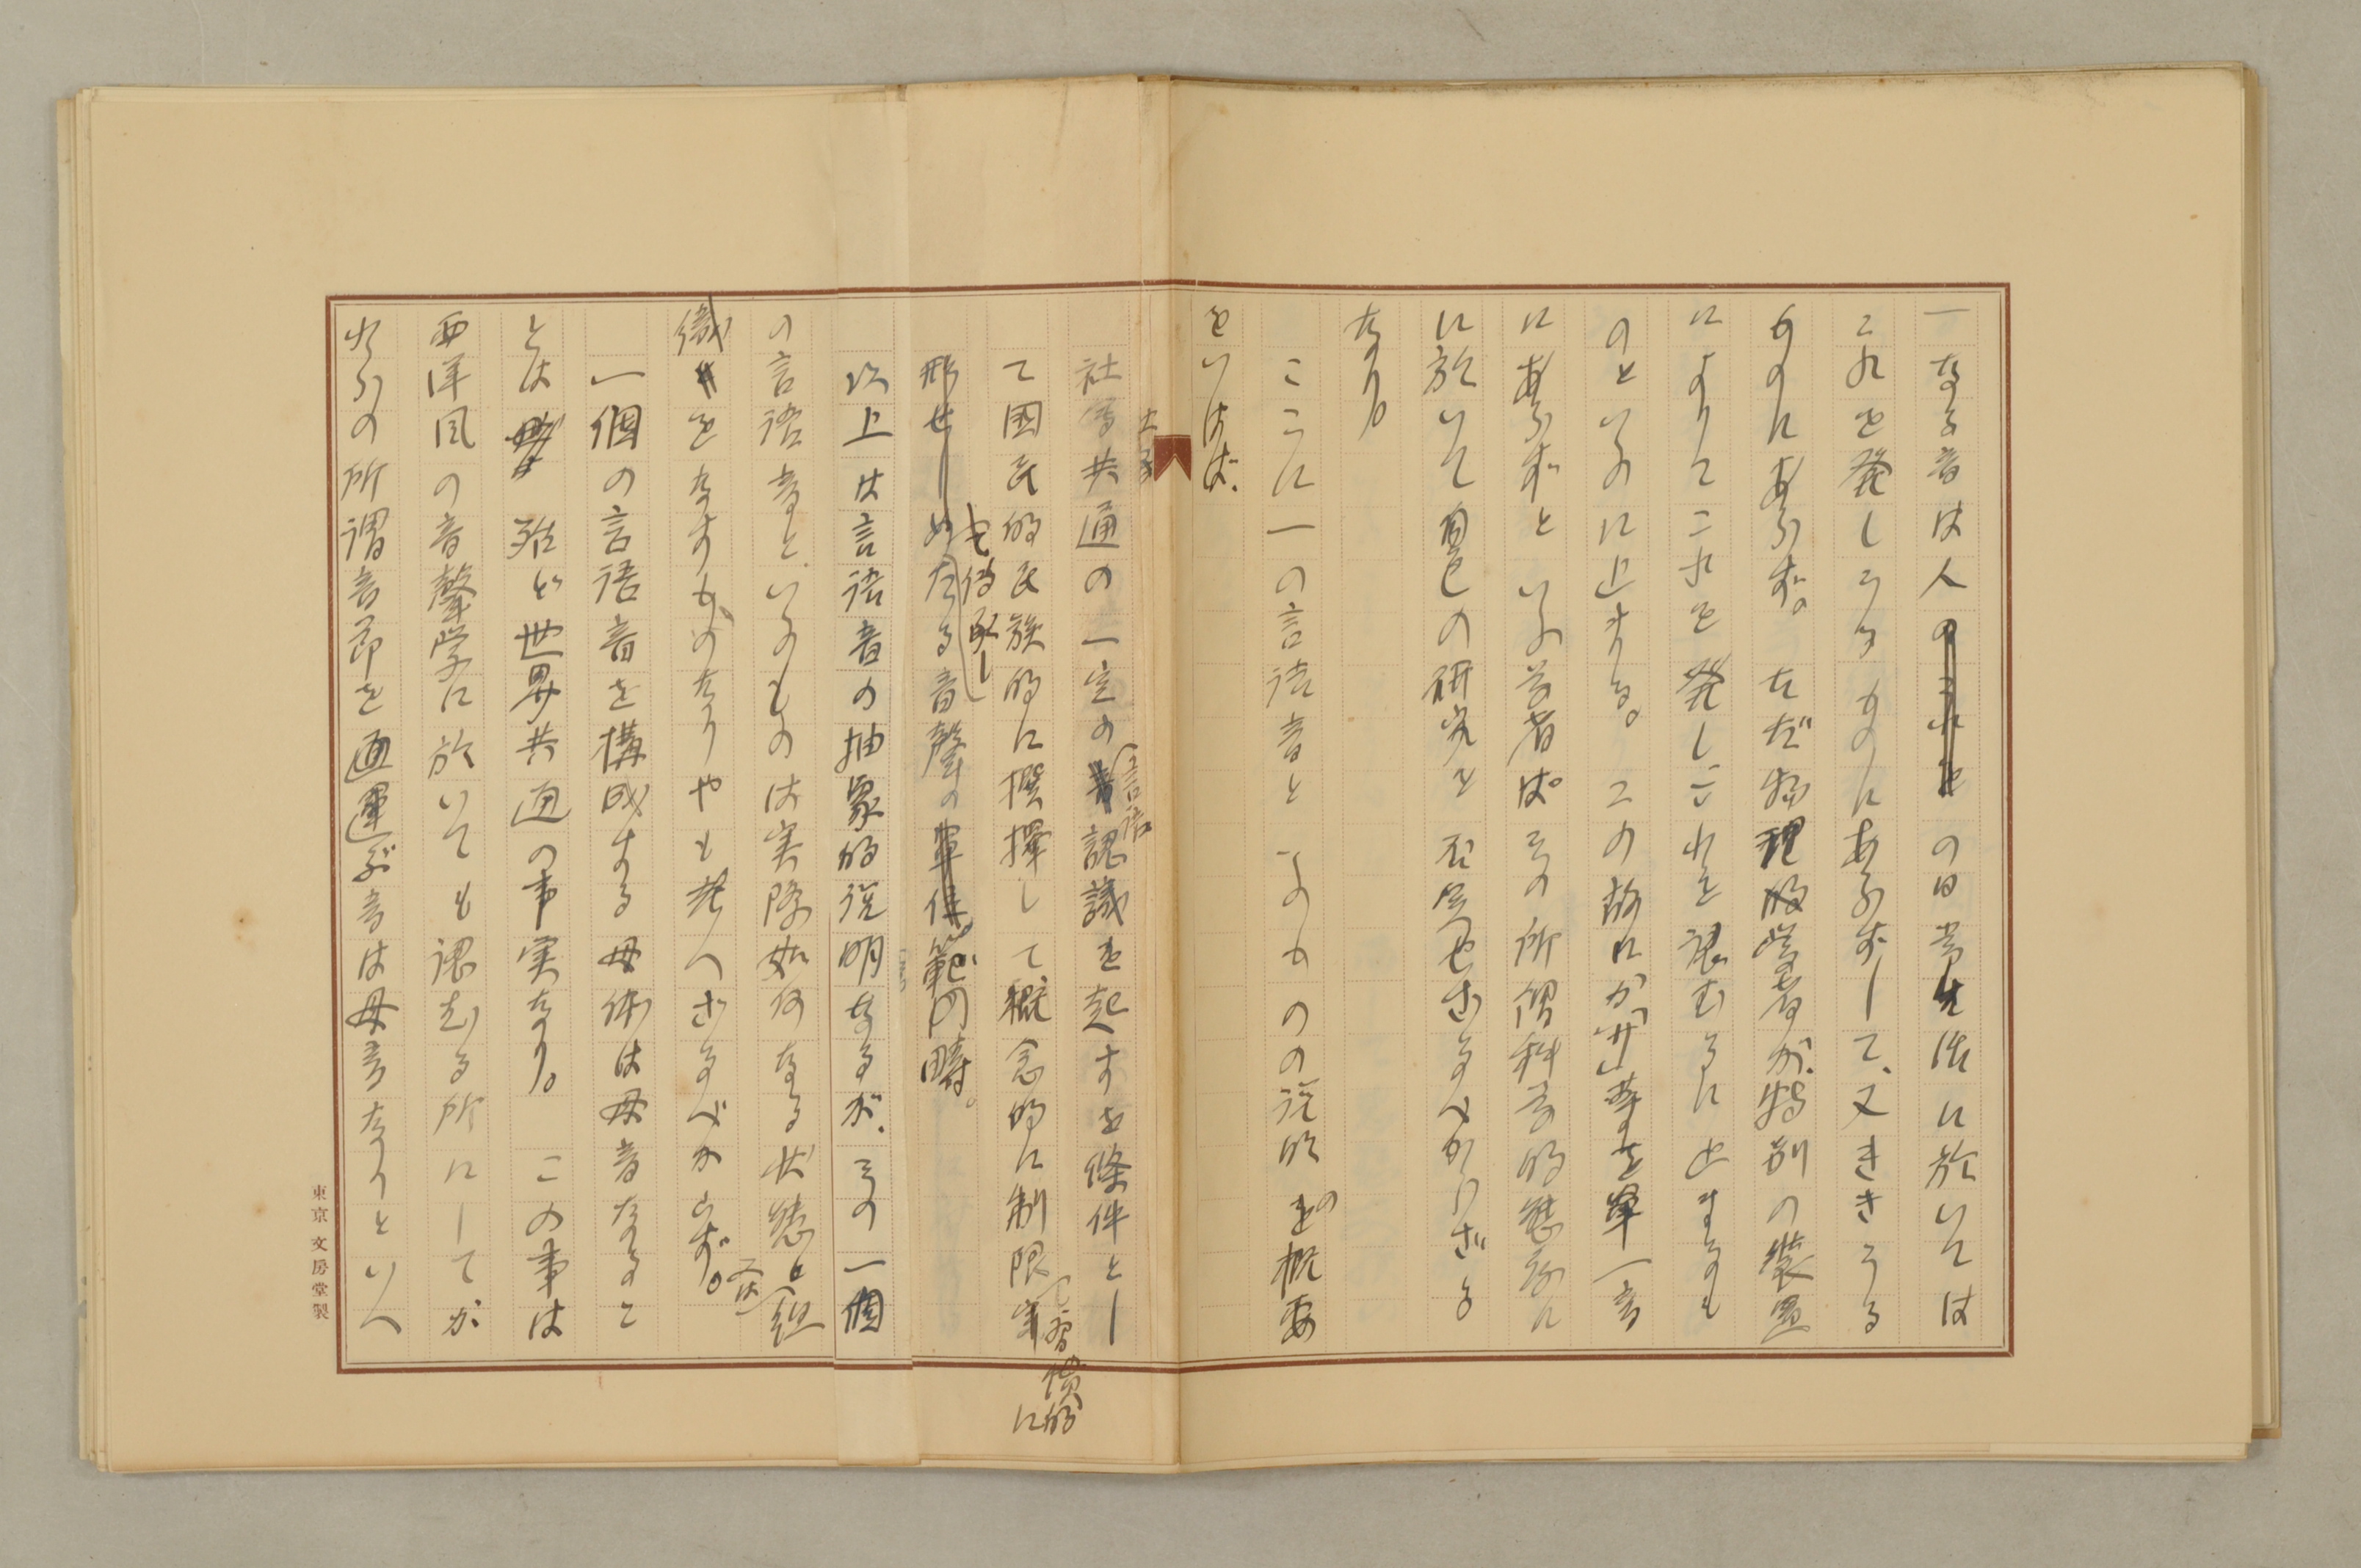 一なる音は人のこれをの日常生活に於いては
これを発しうるものにあらずして、又ききうる
ものにあらず。ただ物理的学者が、特別の装置
によりてこれを発し、これを認むるに止まるも
のといふのに止まる。この故にかゝる単一音
にあらずといふ学者は、その所謂科学的態度に
に於いて自己の研究を否定せざるべからざる
なり。
ここに一の言語音といふものの説明の概要
をいはば、
社会共通の一定の言語認識を起すを條件とし
て国民的民族的に撰擇して概念的に制限
習慣的に
形せしめたる音聲の範疇。
以上は言語音の抽象的説明なるが、その一個
の言語音といふものは実際如何なる状態と組
又は
織をなすものなりやも考へざるべからず。
一個の言語音を構成する母体は母音なるこ
とは殆ど世界共通の事実なり。この事は
西洋風の音聲学に於いても認むる所にしてか
れらの所謂音節を運ぶ音は母音なりといへ
東京文房堂製